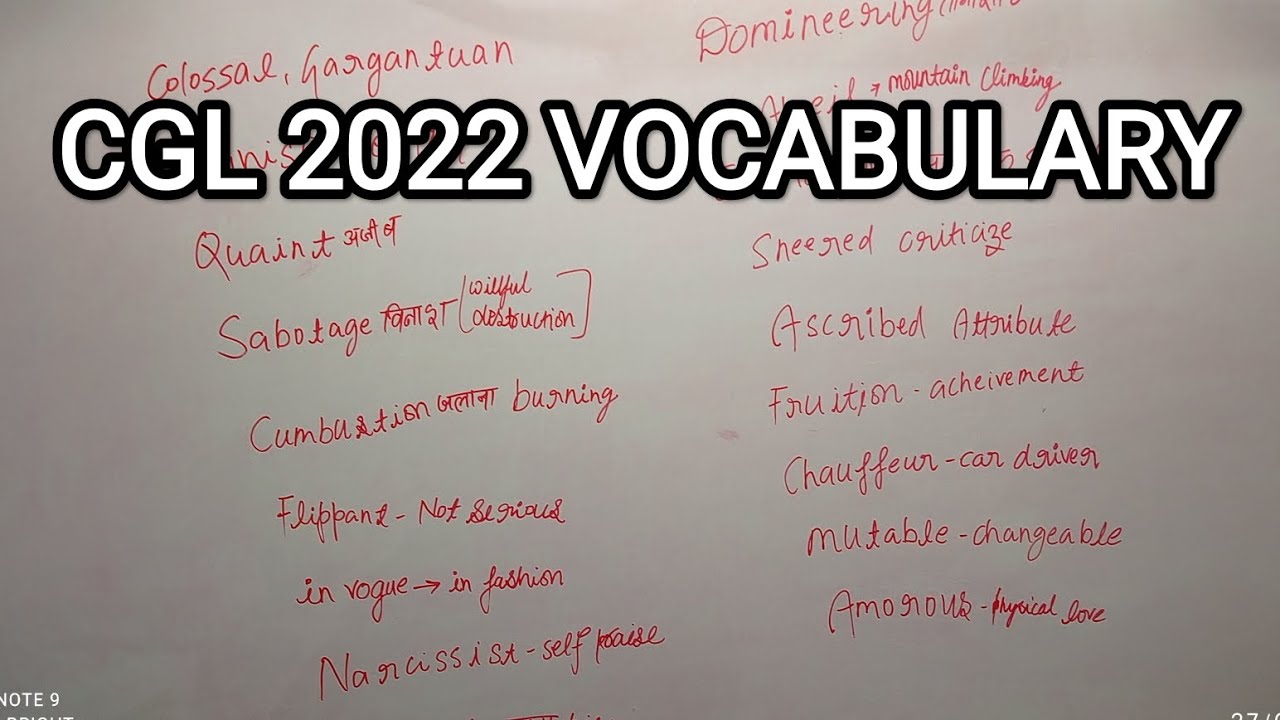 Colossal, Gargantuan
CGL 2022 VOCABULARY
Quaint अजीब
Sabotage विनाश [willful destruction]
Cumbustion जलाना burning
Flippant - Not serious
in vogue → in fashion
Narcissist - self praise
Domineering
→ mountain climbing
Sneered criticize
Ascribed Attribute
Fruition - acheivement
Chauffeur - car driver
mutable - changeable
Amorous - physical love
NOTE 9